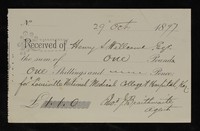 29 Oct. 1897
Received of Henry S. Wellcome Esq.
the sum of One Pounds
One Shillings and Pence
for Louisville National Medical College & Hospital, Ky
£1.1.0 Chas. J. Braithwaite
Agent